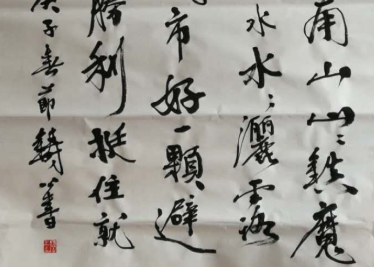 南山山〻鎮魔
水水〻灑雲露
市好一顆〻避
勝利挺住就
庚子春節
書